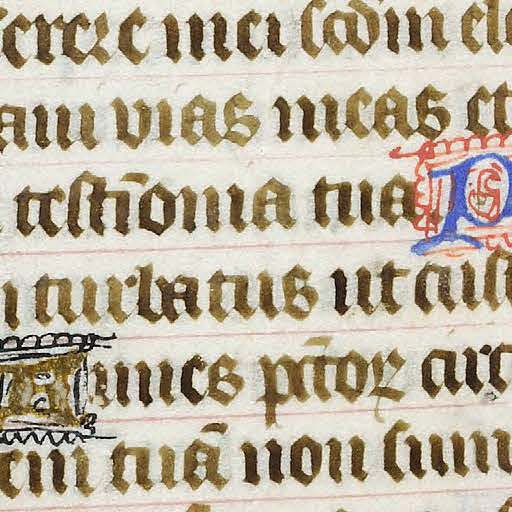 serere mei scdm elo
am vias meas et
testiōnia tua P
turbatus ut cust
Funes pc̄toꝝ circ
em tuā non sum